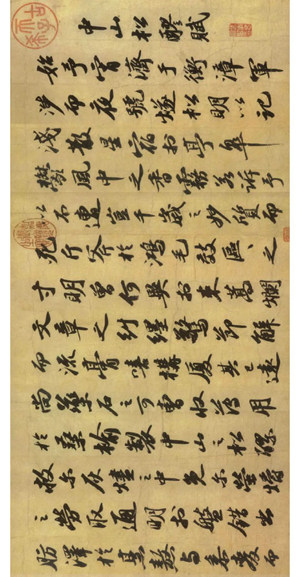 中山松醪賦
始予宵濟于衡漳軍
涉而夜號燧松明以記
淺散星宿於亭皋
鬱風中之香霧若訴予
以不遭豈千歲之妙質而
死斤斧於鴻毛效區〻之
寸明曾何異於束蒿爛
文章之糾纆驚節解
而流膏嘻構廈其已遠
尚藥石之可曹收薄用
於桑榆製中山之松醪
救爾灰燼之中免爾螢爝
之勞取通明於盤錯出
肪澤於烹熬與黍麥而